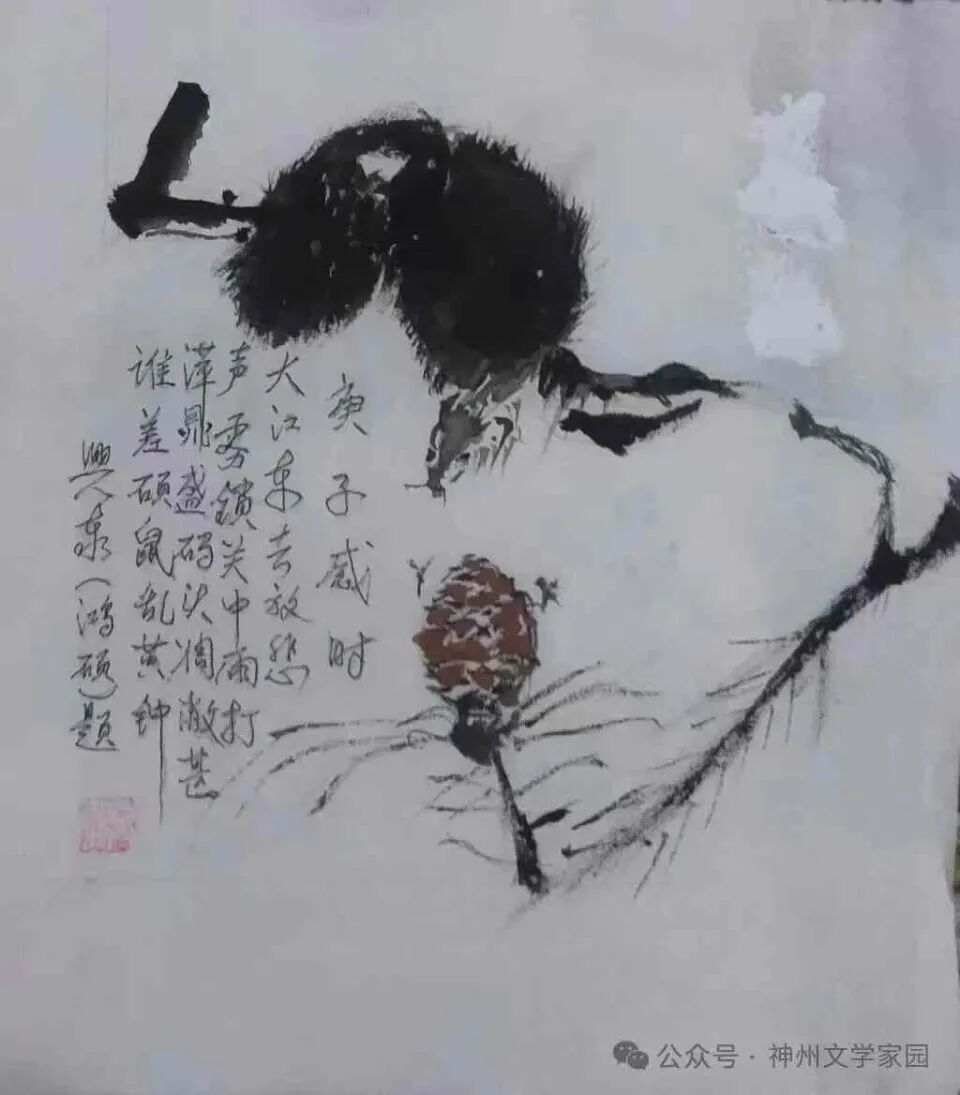 庚子感时
大江东去放悲
声雾鎖关中雨打
萍鼎盛码头凋敝甚
谁差硕鼠乱黄钟
興泉(鸿硕)题
公众号 · 神州文学家园